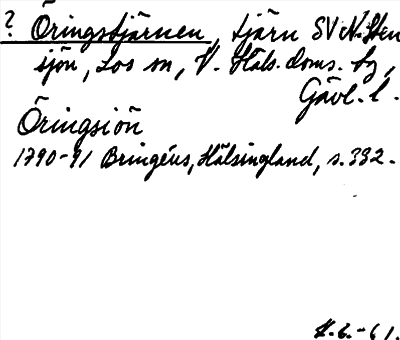 ? Öringstjärnen, tjärn SV N. Sten
sjön, Los sn, V. Häls. doms. fg,
Gävl. l.
Öringsiön
1790-91 Bringéus, Hälsingland, s. 332.